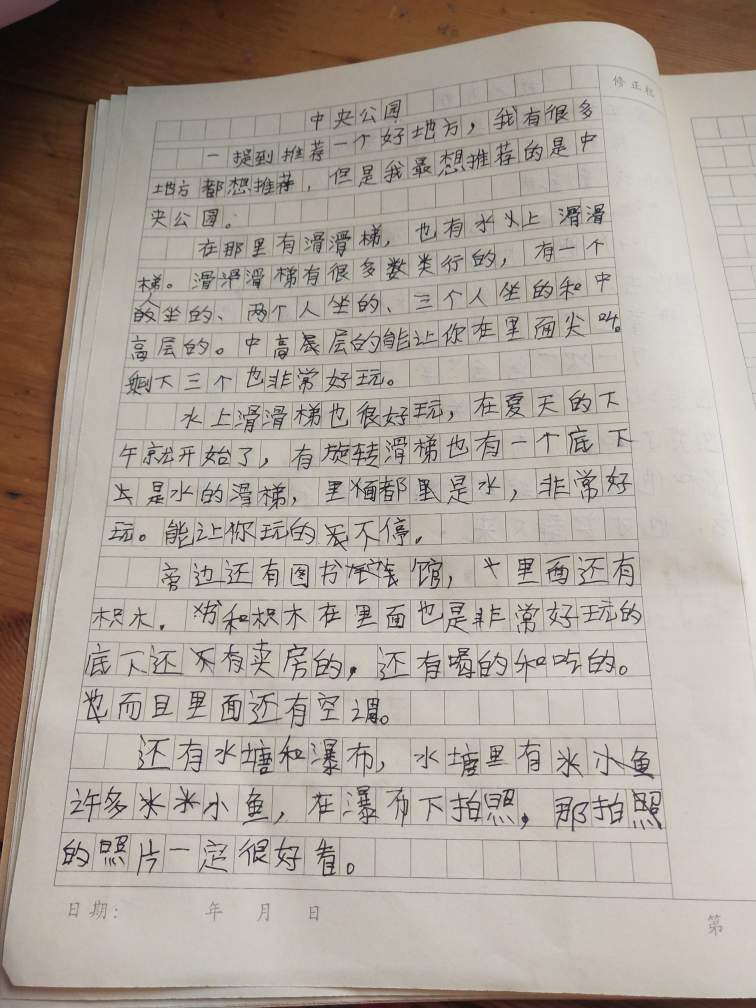 修正栏
中央公园
一提到推荐一个好地方，我有很多
地方都想推荐，但是我最想推荐的是中
央公园。
在那里有滑滑梯，也有水上滑滑
梯。滑滑梯有很多数类行的，有一个
人坐的、两个人坐的、三个人坐的和中
高层的。中高层的能让你在里面尖叫。
剩下三个也非常好玩。
水上滑滑梯也很好玩，在夏天的下
午就开始了，有旋转滑梯也有一个底下
是水的滑梯，里面都是水，非常好
玩。能让你玩的不停．
旁边还有图书馆，里面还有
积木．书和积木在里面也是非常好玩的
底下还有卖房的，还有喝的和吃的。
而且里面还有空调。
还有水塘和瀑布，水塘里有小鱼
许多小鱼，在瀑布下拍照，那拍照
的照片一定很好看。
日期： 年 月 日
第